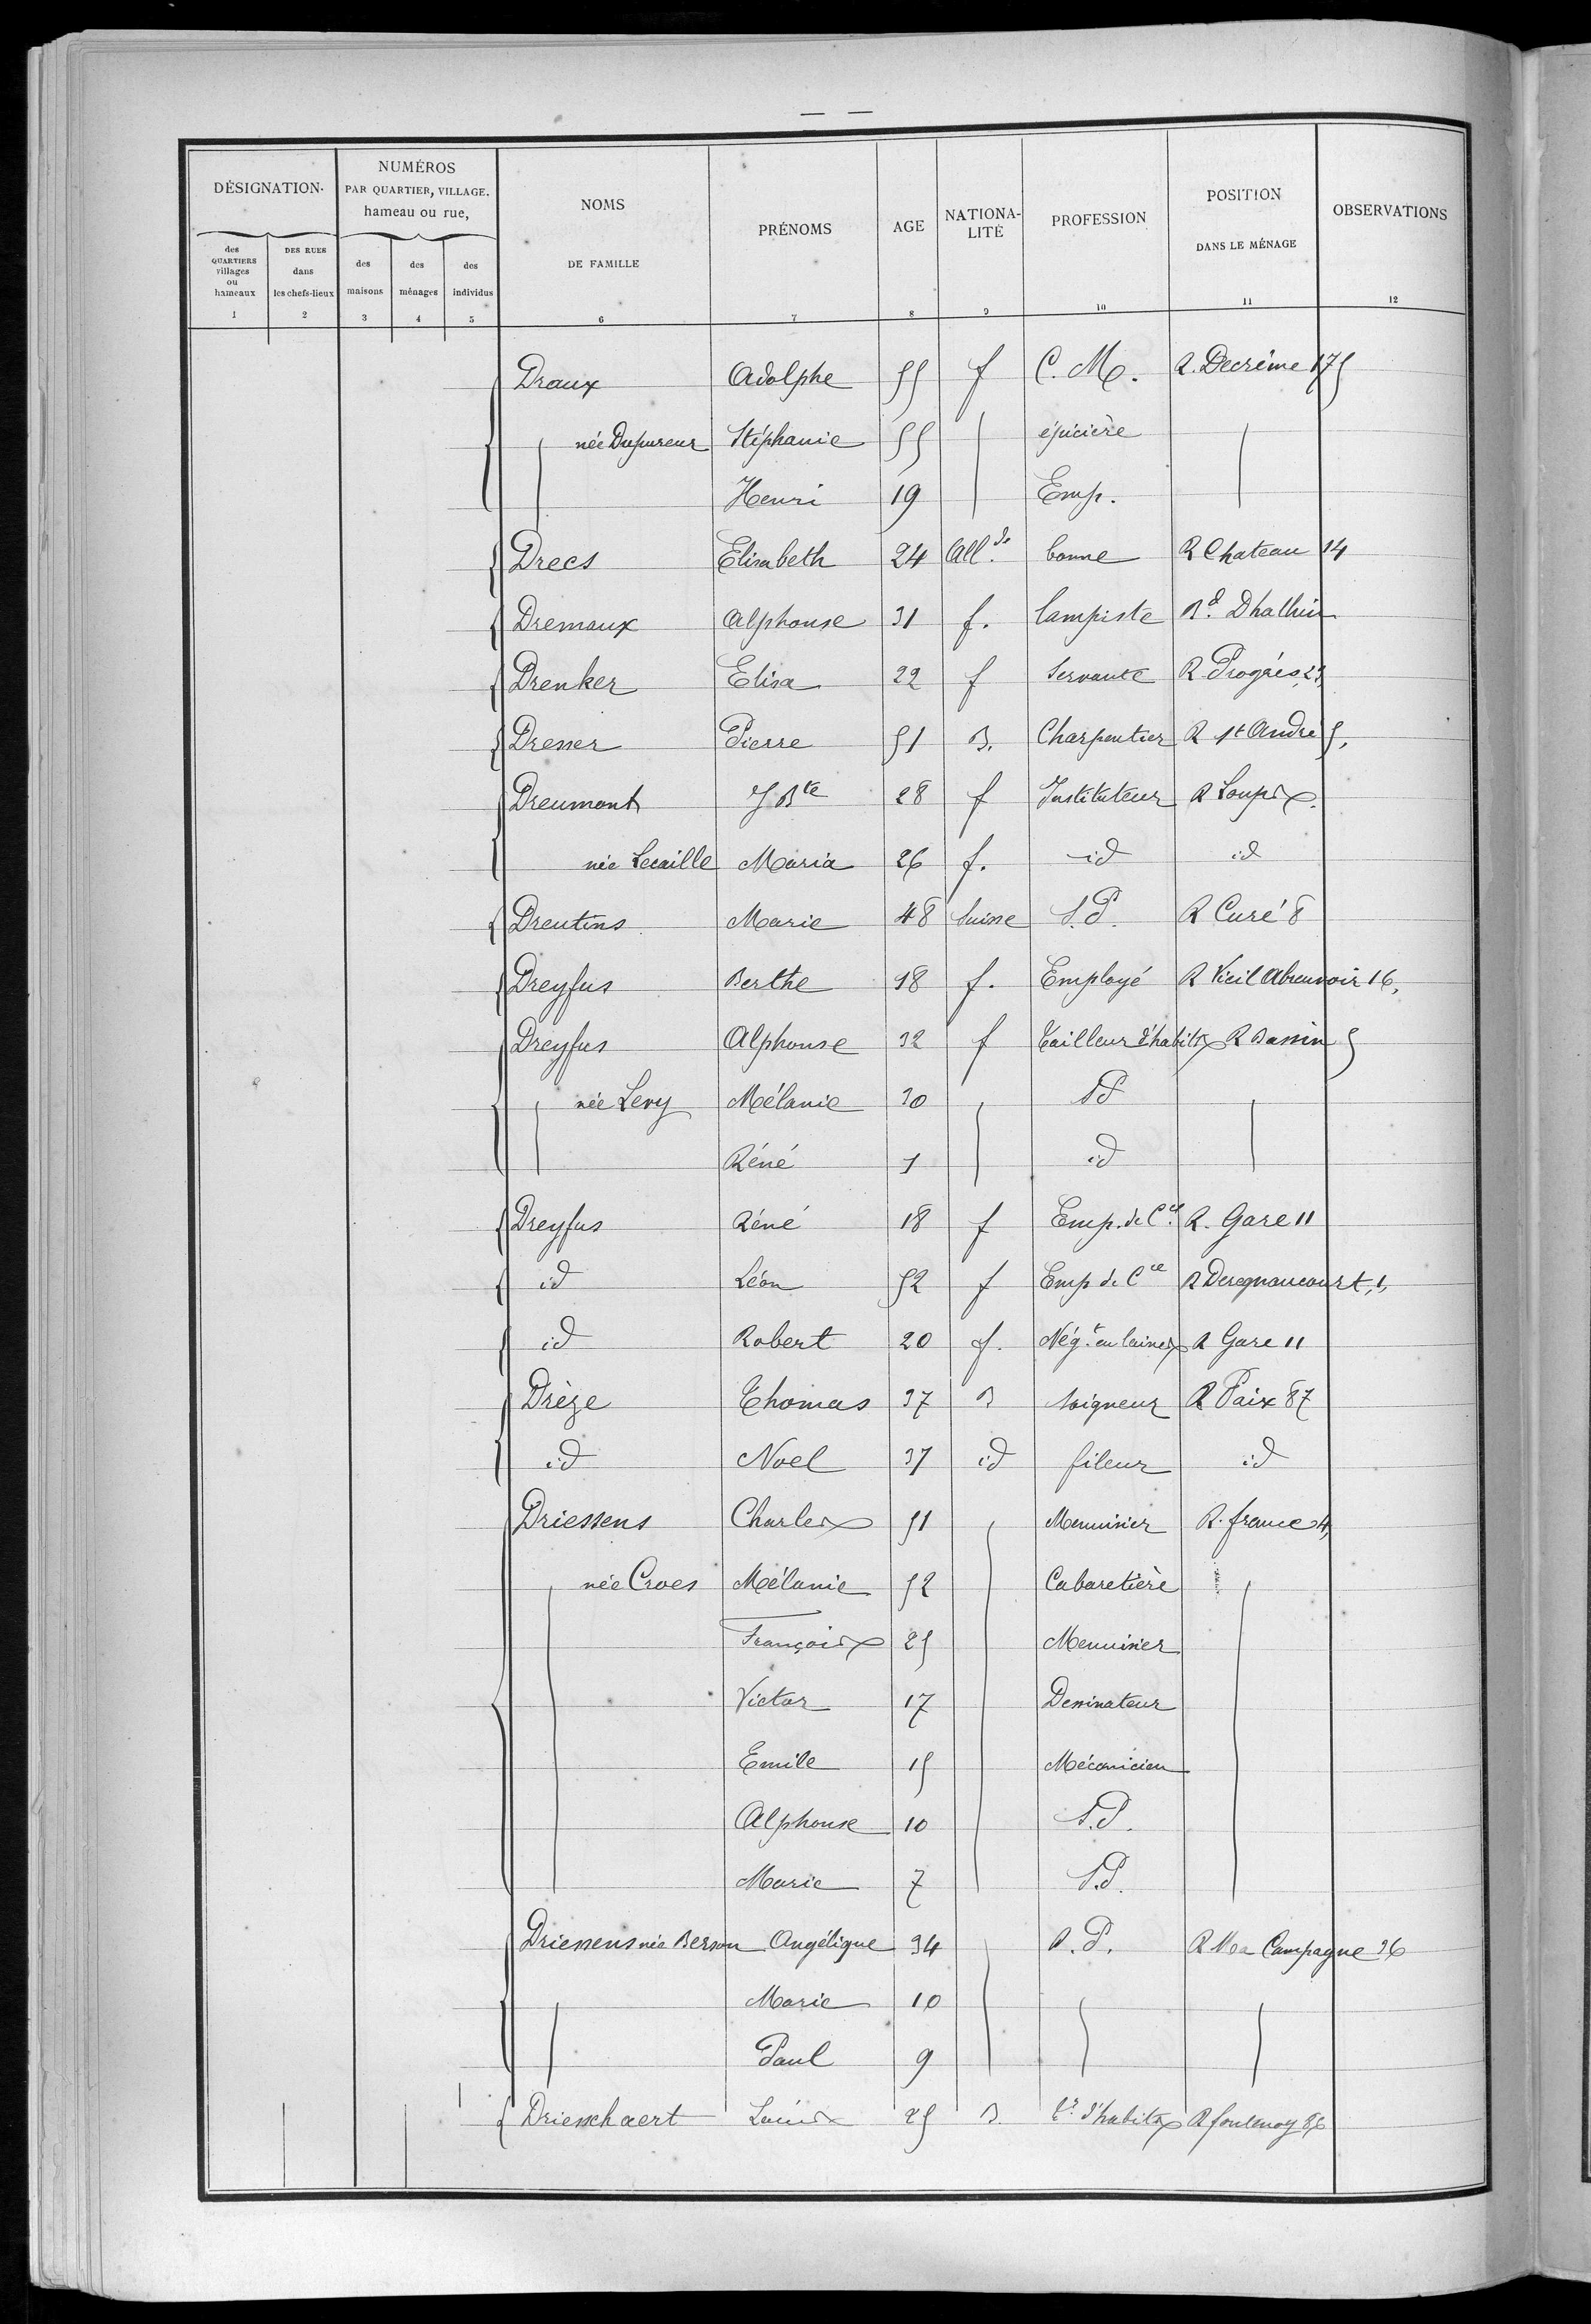 DÉSIGNATION.
des QUARTIERS villages ou hameaux
DES RUES dans les chefs-lieux
NUMÉROS
PAR QUARTIER, VILLAGE.
hameau ou rue,
des maisons
des ménages
des individus
NOMS
DE FAMILLE
PRÉNOMS
AGE
NATIONA-
LITÉ
PROFESSION
POSITION
DANS LE MÉNAGE
OBSERVATIONS
1 2 3 4 5 6 7 8 9 10 11 12
Draux Adolphe 55 f C. M. R. Decrême 175
née Dupureur Stéphanie 55 épicière
Henri 19 Emp.
Drees Elisabeth 24 All.de bonne R Chateau 14
Dremaux Alphonse 31 f. lampiste Bd Dhalluin
Drenker Elisa 22 f Servante R Progrès 23,
Dresser Pierre 51 B. Charpentier R St André 5,
Dreumont J Bte 28 f Instituteur R Loups
née Lecaille Maria 26 f. id id
Dreutins Marie 48 Suisse S.P. R Curé 8
Dreyfus Berthe 18 f. Employé R Vieil Abreuvoir 16,
Dreyfus Alphonse 32 f Tailleur d'habits R Bassin 5
née Levy Mélanie 30 SP
Réné 1 id
Dreyfus Réné 18 f Emp. de Cce R. Gare 11
id Léon 52 f Emp de Cce R Deregnaucourt, 1,
id Robert 20 f. Négt en laines R Gare 11
Drèze Thomas 37 B soigneur R Paix 87
id Noel 37 id fileur id
Driessens Charles 51 Menuisier R. france 4,
née Croes Mélanie 52 Cabaretière
François 25 Menuisier
Victor 17 Dessinateur
Emile 15 Mécanicien
Alphonse 10 S.P.
Marie 7 S.P.
Driessens née Berson Angélique 34 S.P. R Ma Campagne 36
Marie 10
Paul 9
Driesschaert Louis 25 B. Tr d'habits R fontenoy 86